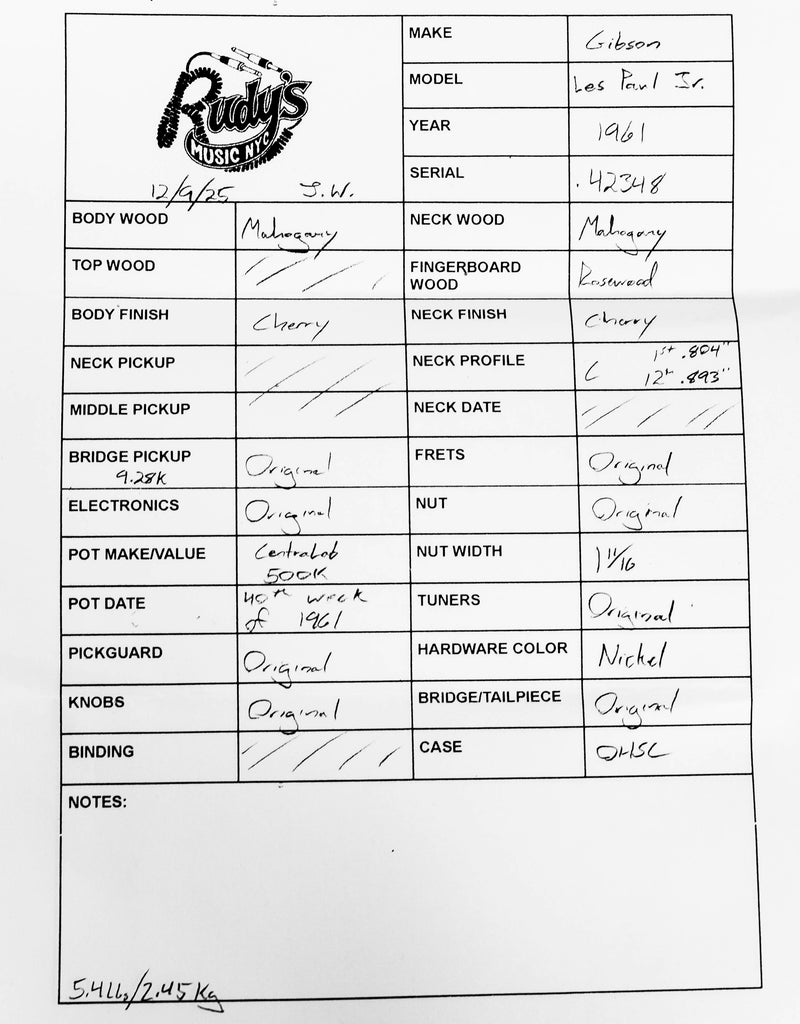 Rudy's
MUSIC NYC
12/9/25 J.W.
MAKE Gibson
MODEL Les Paul Jr.
YEAR 1961
SERIAL .42348
BODY WOOD Mahogany NECK WOOD Mahogany
TOP WOOD FINGERBOARD
WOOD Rosewood
BODY FINISH Cherry NECK FINISH Cherry
NECK PICKUP NECK PROFILE C 1st .804"
12th .893"
MIDDLE PICKUP NECK DATE
BRIDGE PICKUP Original FRETS Original
9.28K
ELECTRONICS Original NUT Original
POT MAKE/VALUE Centralab NUT WIDTH 1 11/16
500K
POT DATE 40th week TUNERS Original
of 1961
PICKGUARD Original HARDWARE COLOR Nickel
KNOBS Original BRIDGE/TAILPIECE Original
BINDING CASE OHSC
NOTES:
5.4lbs/2.45Kg